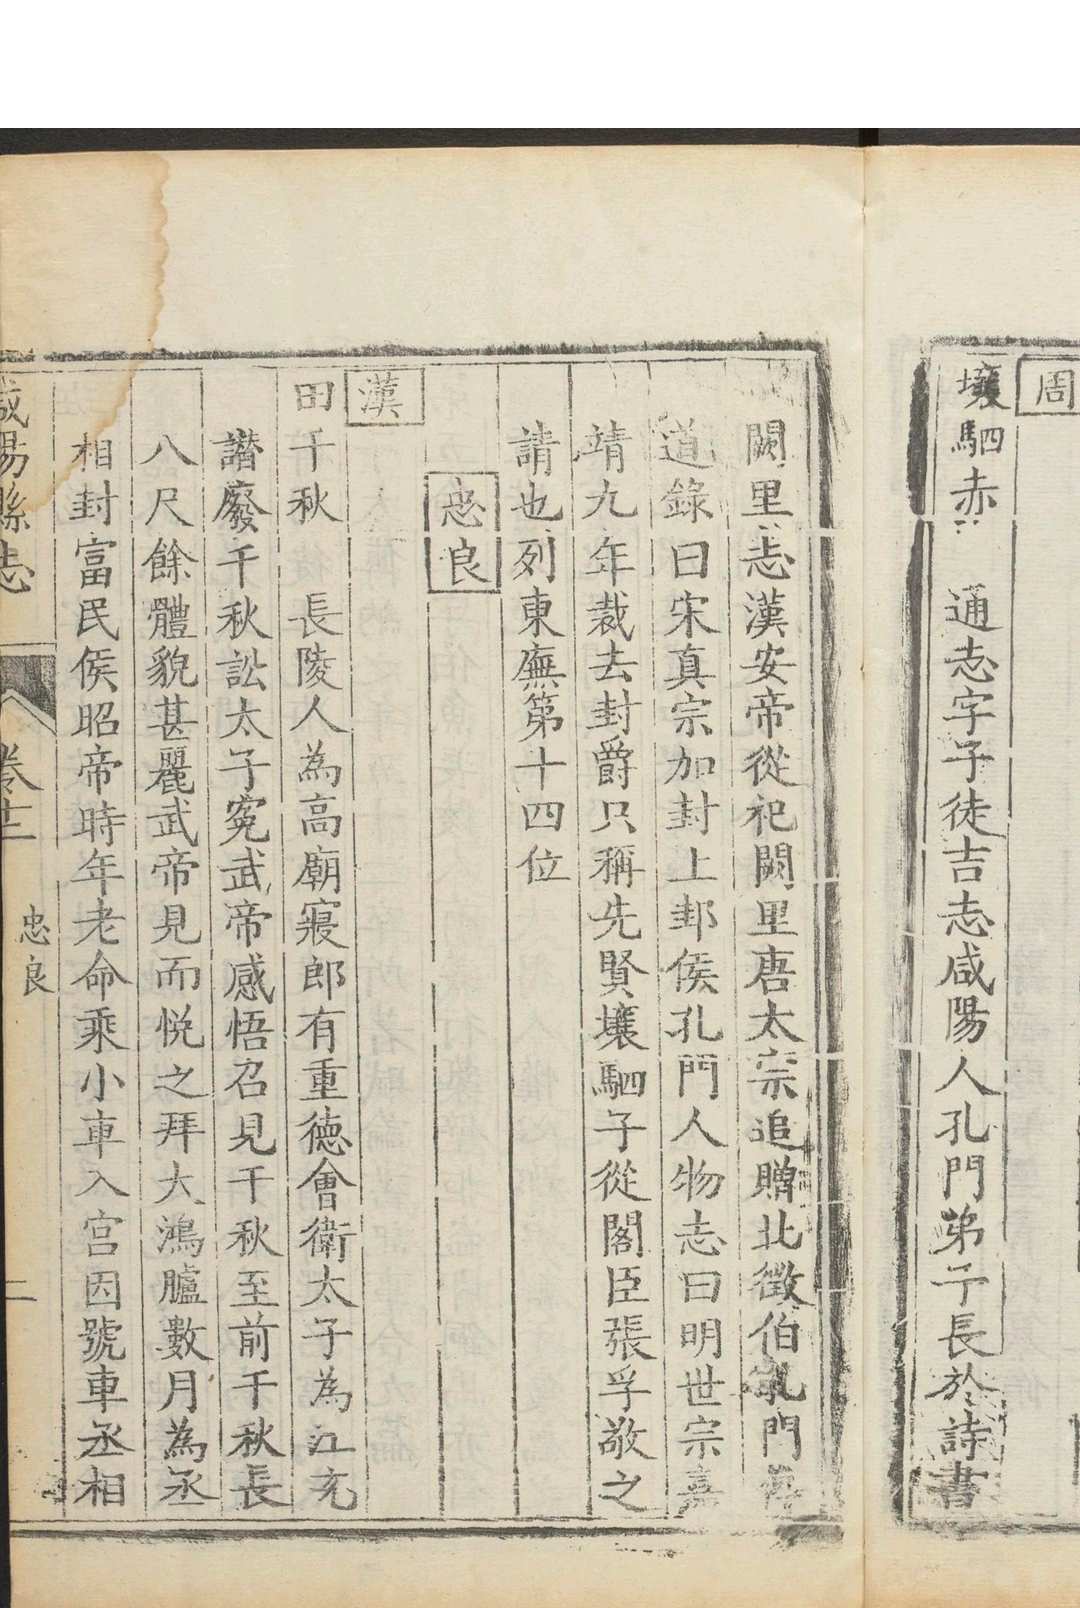 周
壤駟赤 通志字子徒吉志咸陽人孔門弟子長於詩書
闕里志漢安帝從祀闕里唐太宗追贈北徵伯孔門
道錄曰宋真宗加封上邽侯孔門人物志曰明世宗嘉
靖九年裁去封爵只稱先賢壤駟子從閣臣張孚敬之
請也列東廡第十四位
忠良
漢
田千秋 長陵人為高廟寢郎有重德會衛太子為江充
譖廢千秋訟太子寃武帝感悟召見千秋至前千秋長
八尺餘體貌甚麗武帝見而悅之拜大鴻臚數月為丞
相封富民侯昭帝時年老命乘小車入宮因號車丞相
咸陽縣志 卷十二 忠良 二